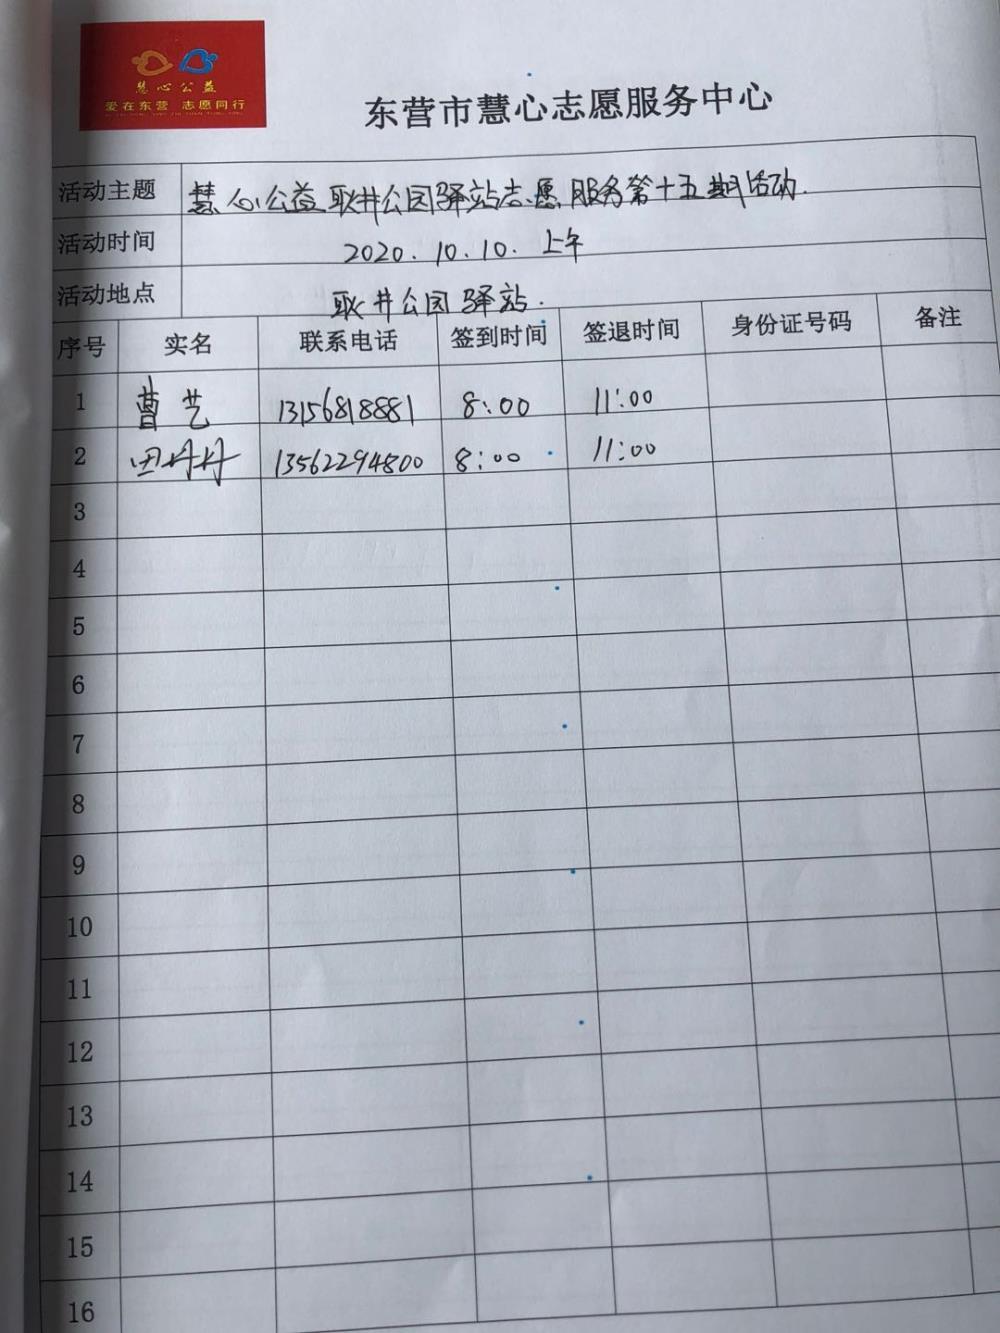 慧心公益
爱在东营 志愿同行
东营市慧心志愿服务中心
活动主题 慧心公益耿井公园驿站志愿服务第十五期活动.
活动时间 2020.10.10.上午
活动地点 耿井公园驿站.
序号 实名 联系电话 签到时间 签退时间 身份证号码 备注
1 曹艺 13156818881 8:00 11:00
2 田丹丹 13562294800 8:00 11:00
3
4
5
6
7
8
9
10
11
12
13
14
15
16